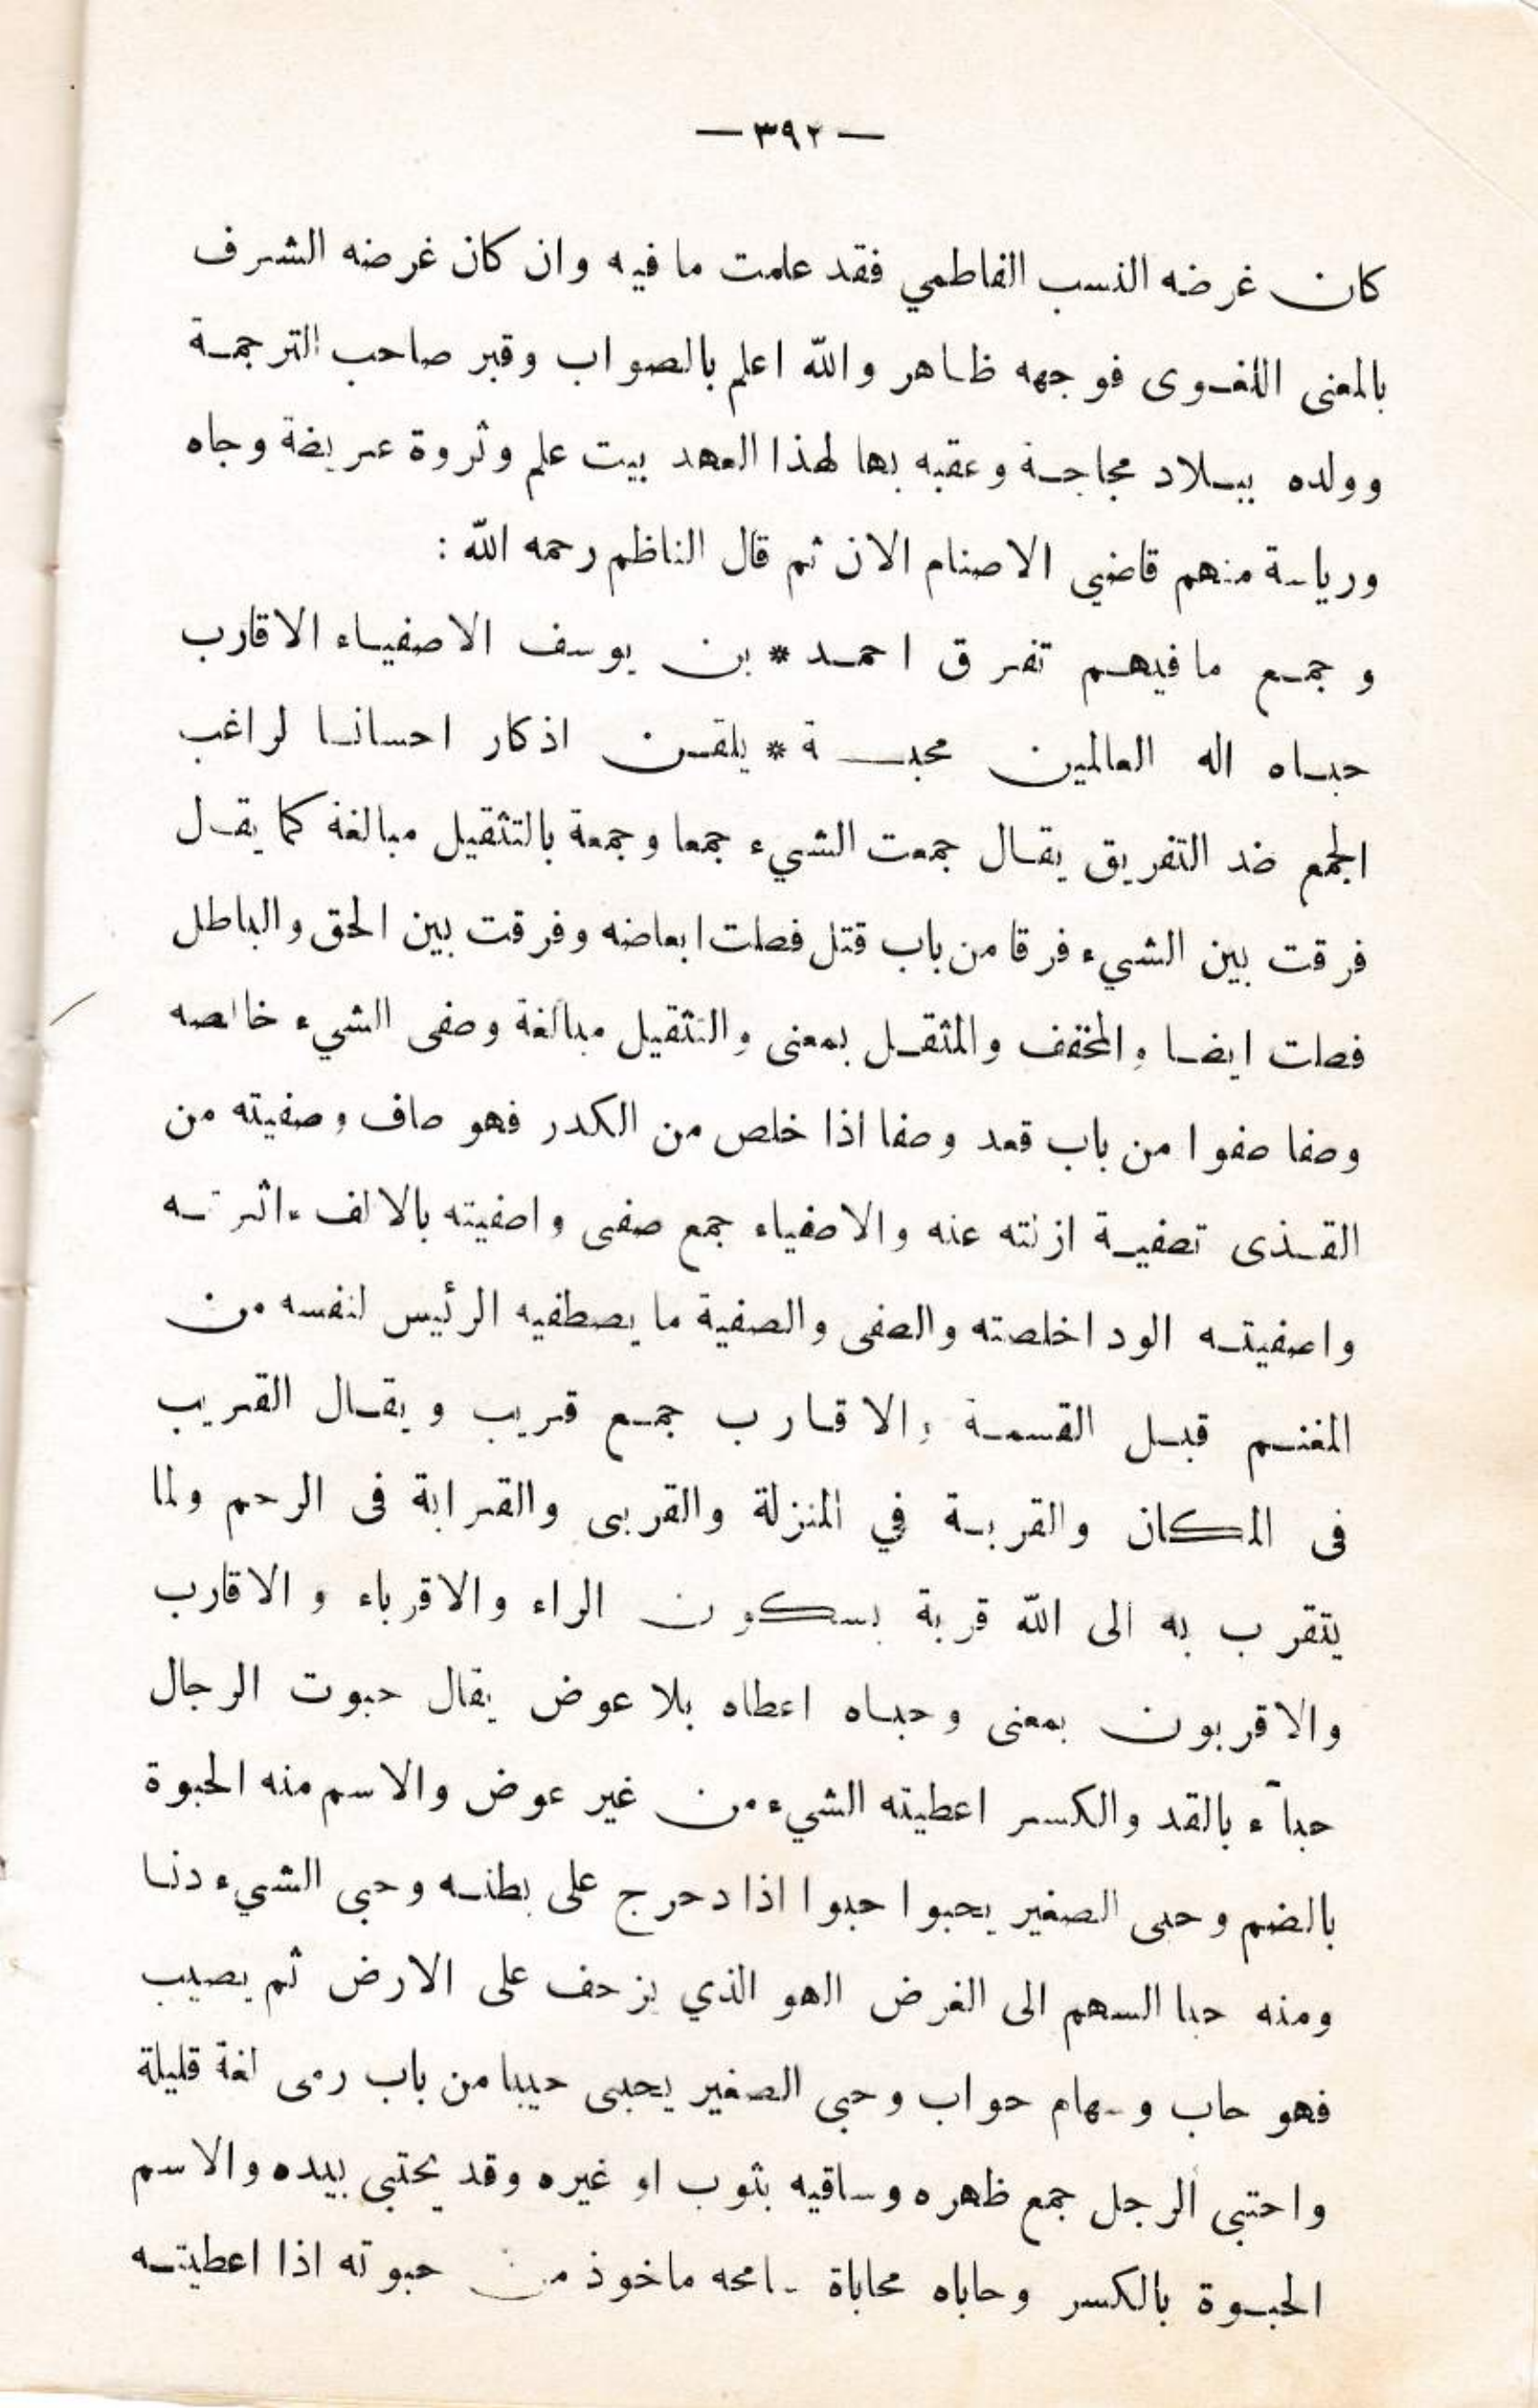 — ٣٩٢ —
كان غرضه النسب الفاطمي فقد علمت ما فيه وان كان غرضه الشرف
بالمعنى اللغوى فوجهه ظاهر والله اعلم بالصواب وقبر صاحب الترجمة
وولده ببلاد مجاجة وعقبه بها لهذا العهد بيت علم وثروة عريضة وجاه
ورياسة منهم قاضي الاصنام الان ثم قال الناظم رحمه الله :
وجمع ما فيهم تفرق احمد * بن يوسف الاصفياء الاقارب
حباه اله العالمين محبة * يلقن اذكار احسانا لراغب
الجمع ضد التفريق يقال جمعت الشيء جمعا وجمعة بالتثقيل مبالغة كما يقل
فرقت بين الشيء فرقا من باب قتل فصلت ابعاضه وفرقت بين الحق والباطل
فصلت ايضا والمخفف والمثقل بمعنى والتثقيل مبالغة وصفى الشيء خالصه
وصفا صفوا من باب قعد وصفا اذا خلص من الكدر فهو صاف وصفيته من
القذى تصفية ازلته عنه والاصفياء جمع صفى واصفيته بالالف ءاثرته
واصفيته الود اخلصته والصفى والصفية ما يصطفيه الرئيس لنفسه من
المغنم قبل القسمة والاقارب جمع قريب ويقال القريب
فى المكان والقربة في المنزلة والقربى والقرابة فى الرحم ولما
يتقرب به الى الله قربة بسكون الراء والاقرباء والاقارب
والاقربون بمعنى وحباه اعطاه بلا عوض يقال حبوت الرجال
حبآء بالقد والكسر اعطيته الشيء من غير عوض والاسم منه الحبوة
بالضم وحبى الصغير يحبوا حبوا اذا دحرج على بطنه وحبى الشيء دنا
ومنه حبا السهم الى الغرض الهو الذي يزحف على الارض ثم يصيب
فهو حاب وسهام حواب وحبى الصغير يحبى حيبا من باب رمى لغة قليلة
واحتبى الرجل جمع ظهره وساقيه بثوب او غيره وقد يحتبي بيده والاسم
الحبوة بالكسر وحاباه محاباة سامحه ماخوذ من حبوته اذا اعطيته